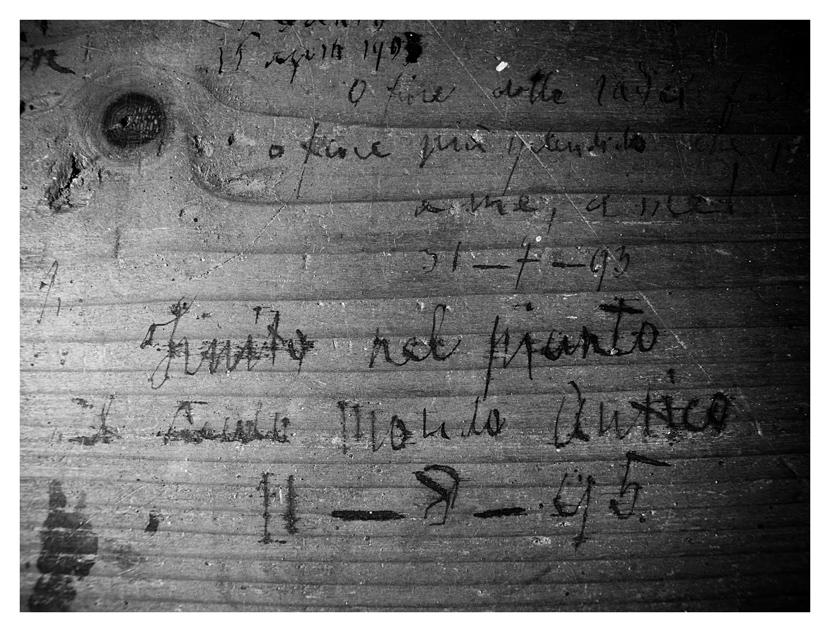 15 agosto
O fiore dalle radici
o fiore più splendido che
a me, a me!
31—7—93
Finito nel pianto
Il Mondo Antico
11—8—95